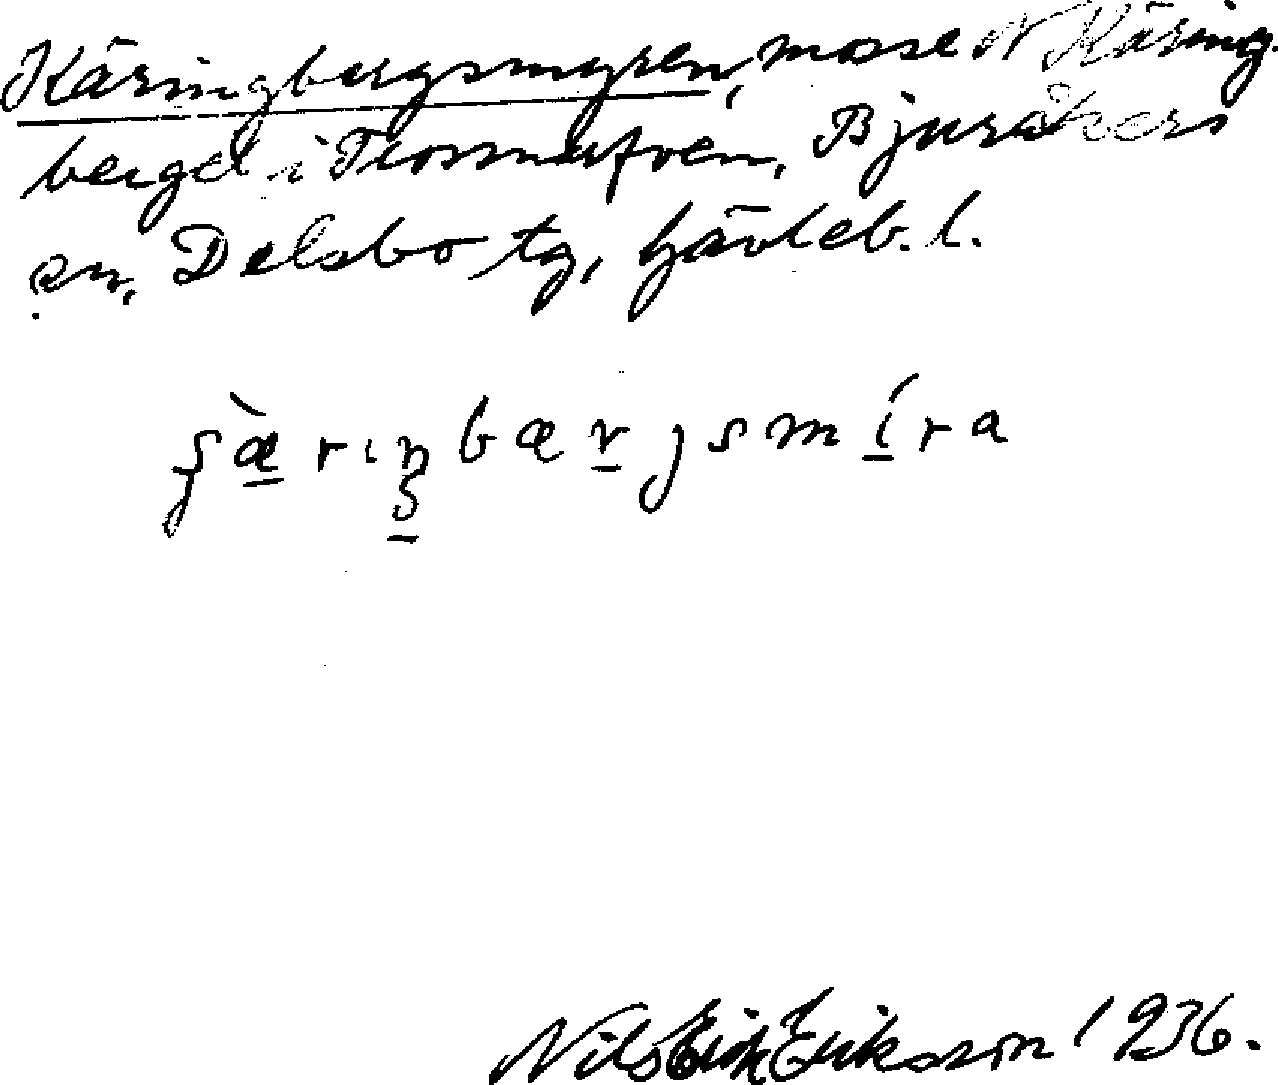 Käringbergsmyren, mosse N Käring-
berget i Trossnarfven, Bjuråkers
sn, Delsbo tg, Gävleb. l.
Nils Erik Eriksson 1936.